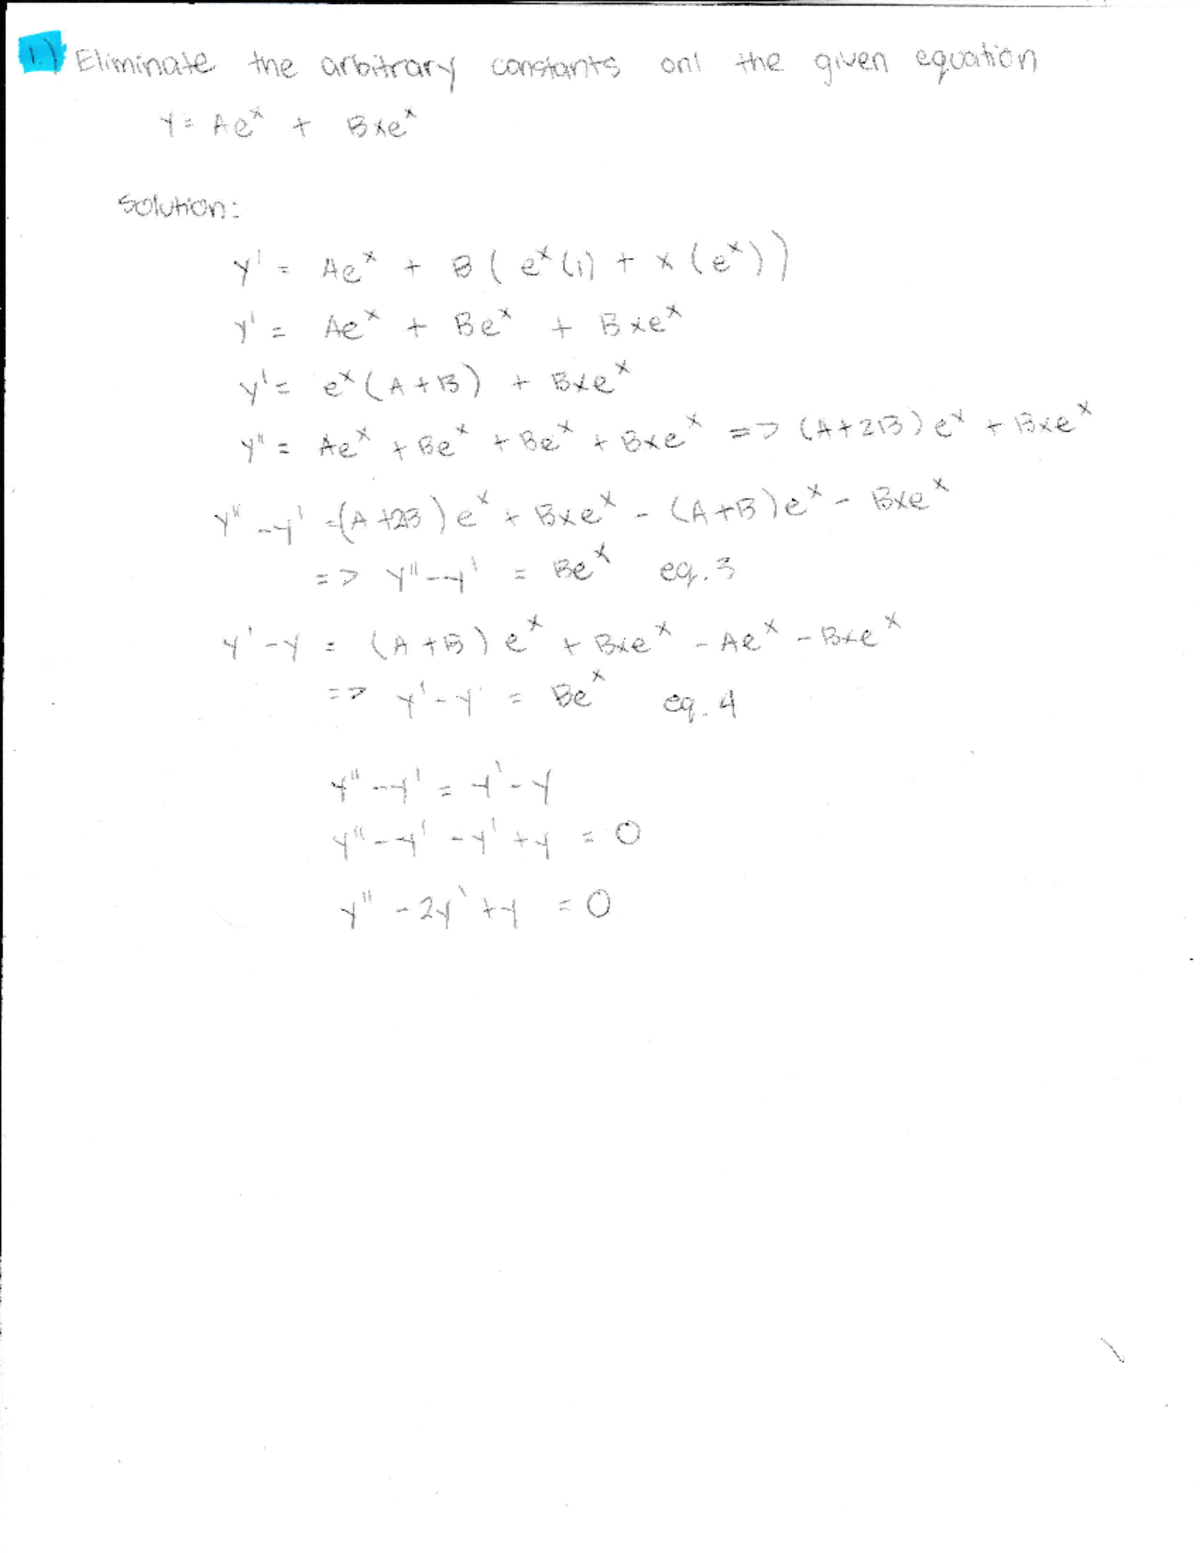 1.) Eliminate the arbitrary constants on! the given equation
y = Ae^x + Bxe^x
Solution:
y' = Ae^x + B ( e^x (1) + x (e^x))
y' = Ae^x + Be^x + Bxe^x
y' = e^x (A + B) + Bxe^x
y'' = Ae^x + Be^x + Be^x + Bxe^x => (A+2B) e^x + Bxe^x
y'' - y' = (A +2B) e^x + Bxe^x - (A+B)e^x - Bxe^x
=> y'' - y' = Be^x eq. 3
y' - y = (A + B) e^x + Bxe^x - Ae^x - Bxe^x
=> y' - y = Be^x eq. 4
y'' - y' = y' - y
y'' - y' - y' + y = 0
y'' - 2y' + y = 0